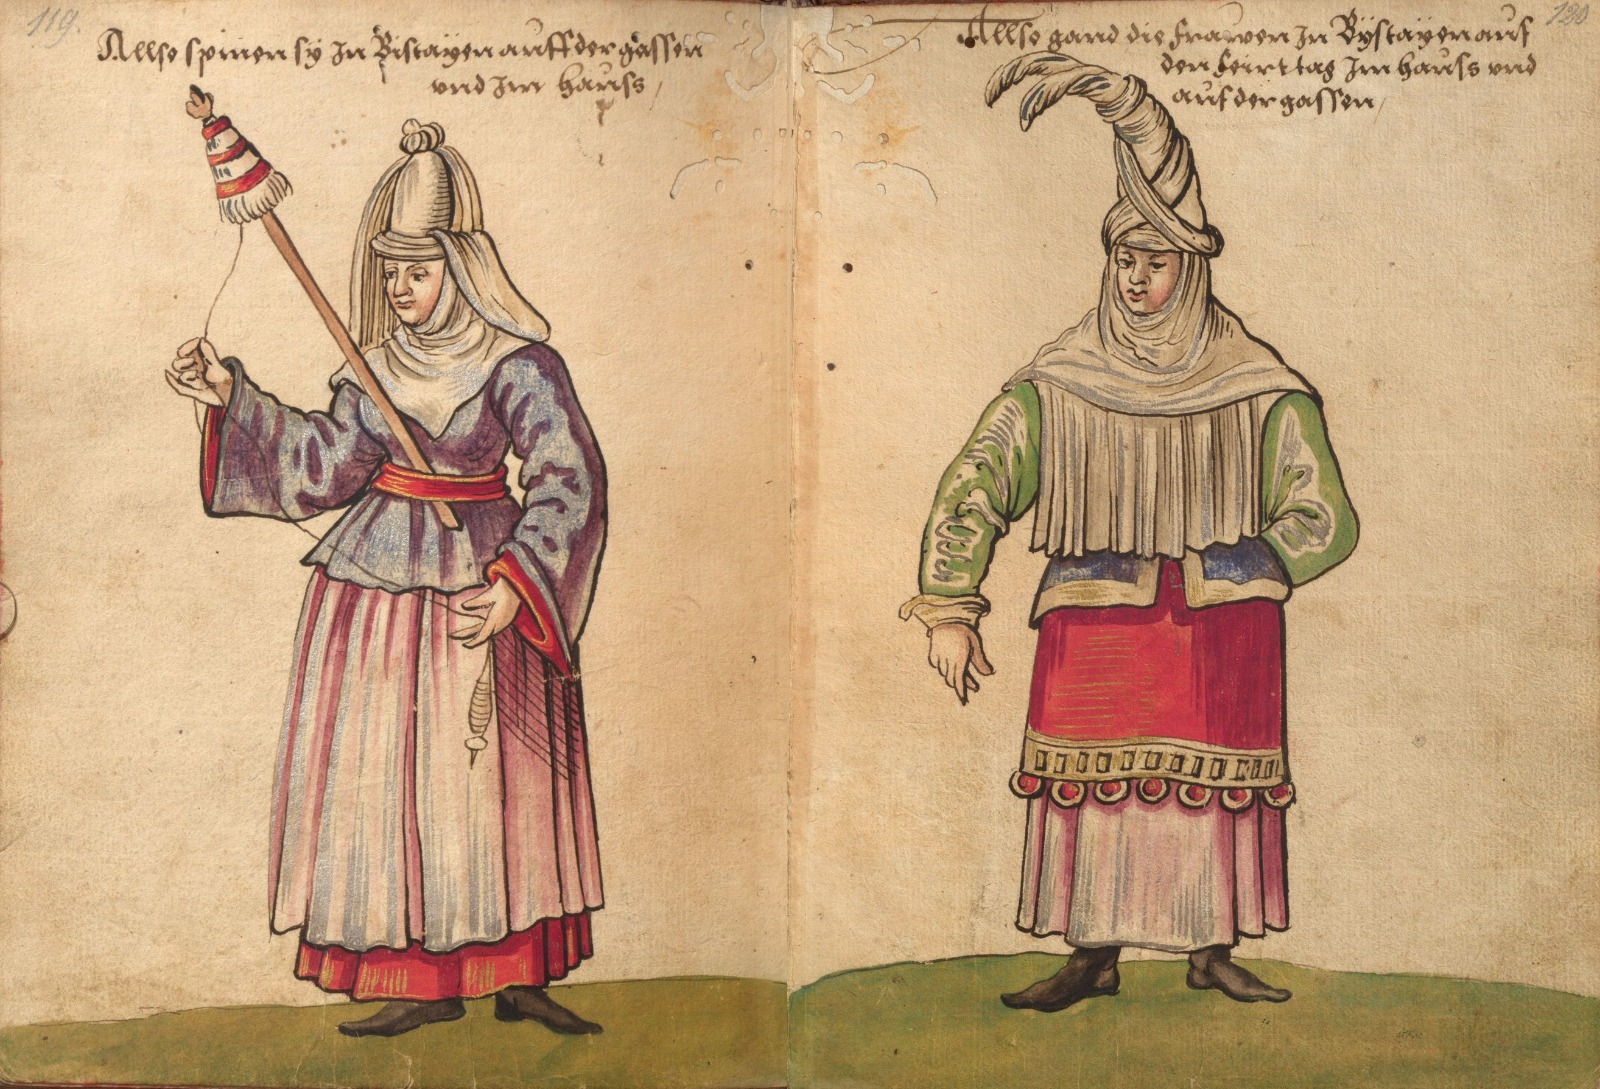 119.
Allso spinen sy In Bistayen auff der gassen
vnd Im hauss /
120
Allso gand die frawen In Bystayen auf
den feirttag Im hauss vnd
auf der gassen /